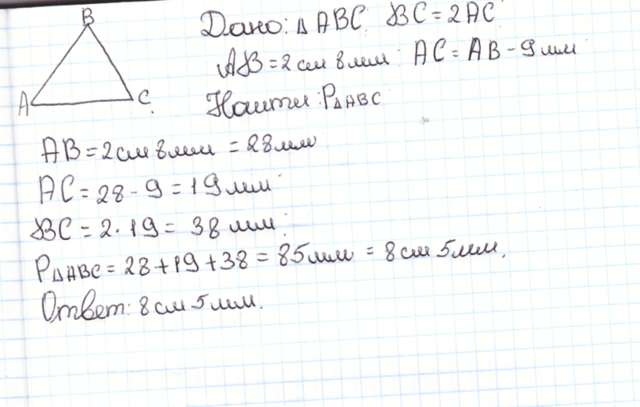 B
A
C
Дано: △ABC BC = 2AC
AB = 2 см 8 мм AC = AB - 9 мм
Найти: P△ABC
AB = 2 см 8 мм = 28 мм
AC = 28 - 9 = 19 мм
BC = 2 · 19 = 38 мм
P△ABC = 28 + 19 + 38 = 85 мм = 8 см 5 мм.
Ответ: 8 см 5 мм.